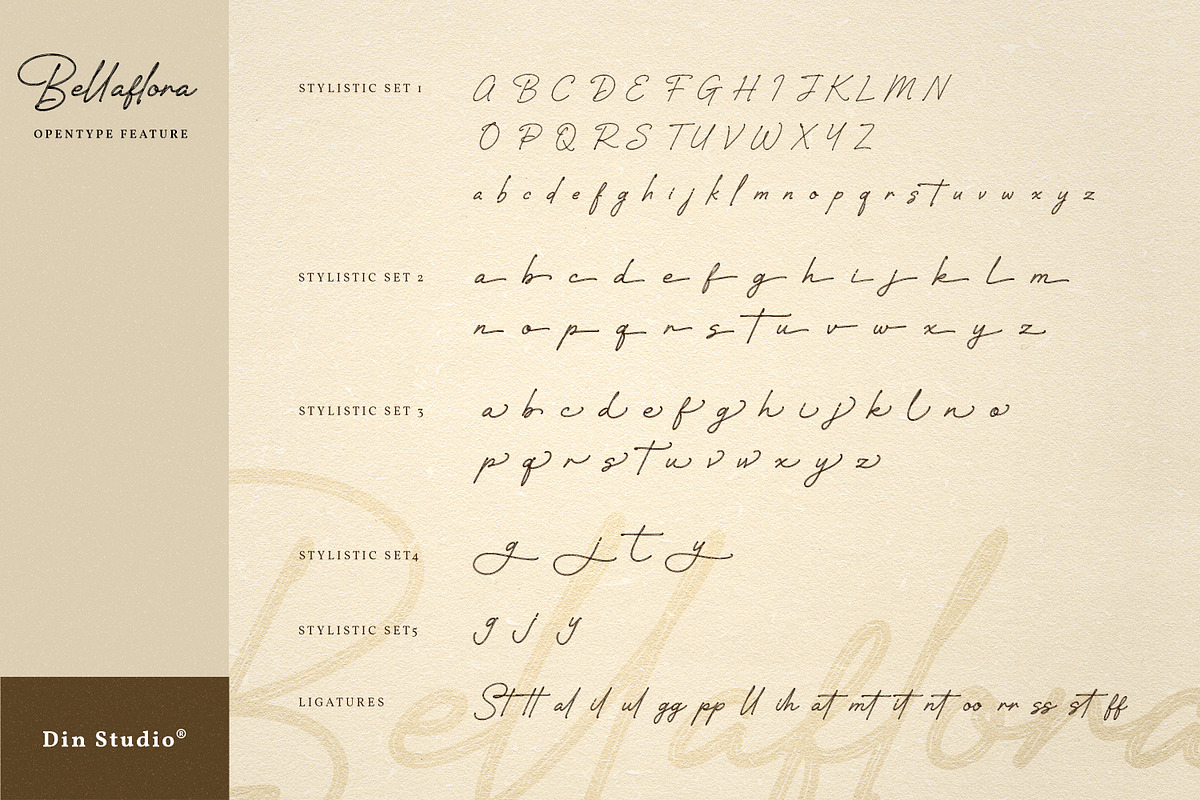 Bellaflora
OPENTYPE FEATURE
STYLISTIC SET 1
A B C D E F G H I J K L M N
O P Q R S T U V W X Y Z
a b c d e f g h i j k l m n o p q r s t u v w x y z
STYLISTIC SET 2
a b c d e f g h i j k l m
n o p q r s t u v w x y z
STYLISTIC SET 3
a b c d e f g h i j k l n o
p q r s t u v w x y z
STYLISTIC SET4
g j t y
STYLISTIC SET5
g j y
LIGATURES
St tt al il ul gg pp ll ih at mt it nt oo rr ss st ff
Bellaflora
Din Studio®